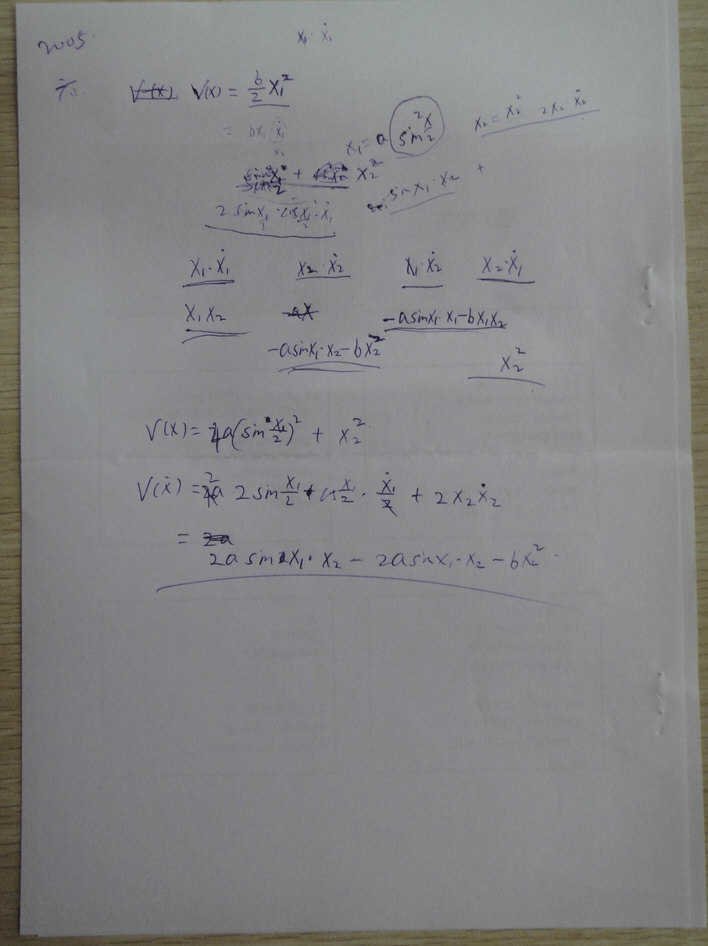 2005.
x₁·ẋ₂
六.
V(x) = b/2 x₁²
= bx₁ ẋ₁
x₂
x₁ = a sin² x/2
x₂ = x₂² 2x₂ ẋ₂
+ x₂²
sin x₁·x₂ +
2 sin x₁/2 · cos x₁/2 · ẋ₁
x₁·ẋ₁ x₂·ẋ₂ x₁·ẋ₂ x₂·ẋ₁
x₁x₂ -a sinx₁·x₁-bx₁x₂
-a sinx₁·x₂-bx₂² x₂²
V(x) = 4a(sin x₁/2)² + x₂²
V(ẋ) = 2 2sin x₁/2 · cos x₁/2 · ẋ₁ + 2x₂ẋ₂
=
2a sin x₁·x₂ - 2a sinx₁·x₂ - bx₂².